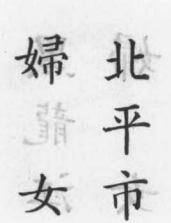 北平市
婦女